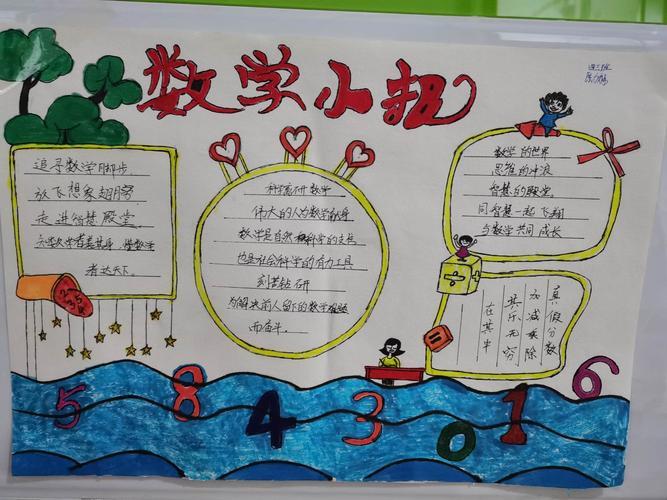 数学小报
四三班
追寻数学脚步、
放飞想象翅膀
走进智慧殿堂、
者达天下。
科季研数学
伟大的人为数学献身
数学是自然科学的支柱
也是社会科学的有力工具
刻苦钻研
为解决前人留下的数学难题
而奋斗。
数学的世界
思维的冲浪
智慧的殿堂、
同智慧一起飞翔
与数学共同成长
真假分数
加减乘除
其乐无穷
在其中
2 3
3 5 4
÷
=
5 8 4 3 0 1 6